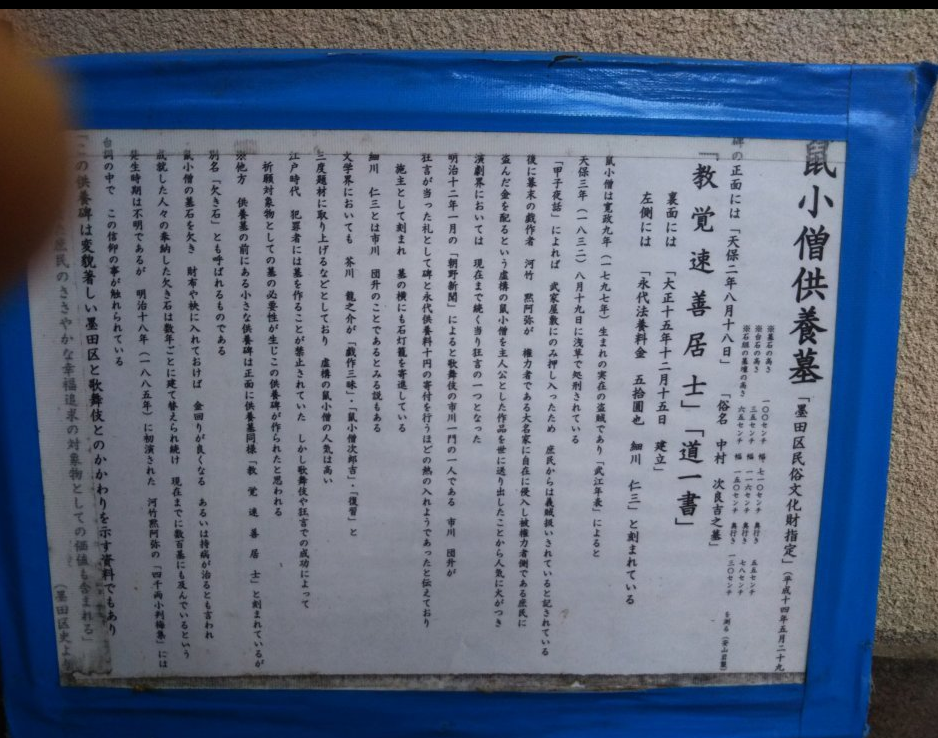 鼠小僧供養墓 「墨田区民俗文化財指定」(平成十四年五月二十九
※墓石の高さ 一〇〇センチ 幅 七一〇センチ 奥行き 五五センチ
※台石の高さ 三五センチ 幅 一一六センチ 奥行き 七八センチ
※石組の墓壇の高さ 六五センチ 幅 一五〇センチ 奥行き 一三〇センチ
碑の正面には 「天保二年八月十八日」 「俗名 中村 次良吉之墓」
「教覚速善居士」「道一書」
裏面には 「大正十五年十二月十五日 建立」
左側には 「永代法養料金 五拾圓也 細川 仁三」と刻まれている
鼠小僧は寛政九年(一七九七年)生まれの実在の盗賊であり「武江年表」によると
天保三年(一八三二)八月十九日に浅草で処刑されている
「甲子夜話」によれば 武家屋敷にのみ押し入ったため 庶民からは義賊扱いされていると記されている
後に幕末の戯作者 河竹 黙阿弥が 権力者である大名家に自在に侵入し被権力者側である庶民に
盗んだ金を配るという虚構の鼠小僧を主人公とした作品を世に送り出したことから人気に火がつき
演劇界においては 現在まで続く当り狂言の一つとなった
明治十二年一月の「朝野新聞」によると歌舞伎の市川一門の一人である 市川 団升が
狂言が当った礼として碑と永代供養料十円の寄付を行うほどの熱の入れようであったと伝えており
施主として刻まれ 墓の横にも石灯籠を寄進している
細川 仁三とは市川 団升のことであるとみる説もある
文学界においても 芥川 龍之介が「戯作三昧」・「鼠小僧次郎吉」・「復讐」と
三度題材に取り上げるなどしており 虚構の鼠小僧の人気は高い
江戸時代 犯罪者には墓を作ることが禁止されていた しかし歌舞伎や狂言での成功によって
祈願対象物としての墓の必要性が生じこの供養碑が作られたと思われる
※他方 供養墓の前にある小さな供養碑は正面に供養墓同様「教 覚 速 善 居 士」と刻まれているが
別名「欠き石」とも呼ばれるものである
鼠小僧の墓石を欠き 財布や袂に入れておけば 金回りが良くなる あるいは持病が治るとも言われ
成就した人々の奉納した欠き石は数年ごとに建て替えられ続け 現在までに数百基にも及んでいるという
発生時期は不明であるが 明治十八年(一八八五年)に初演された 河竹黙阿弥の「四千両小判梅葉」には
台詞の中で この信仰の事が触れられている
「この供養碑は変貌著しい墨田区と歌舞伎とのかかわりを示す資料でもあり
庶民のささやかな幸福追求の対象物としての価値も含まれる」
(墨田区史より